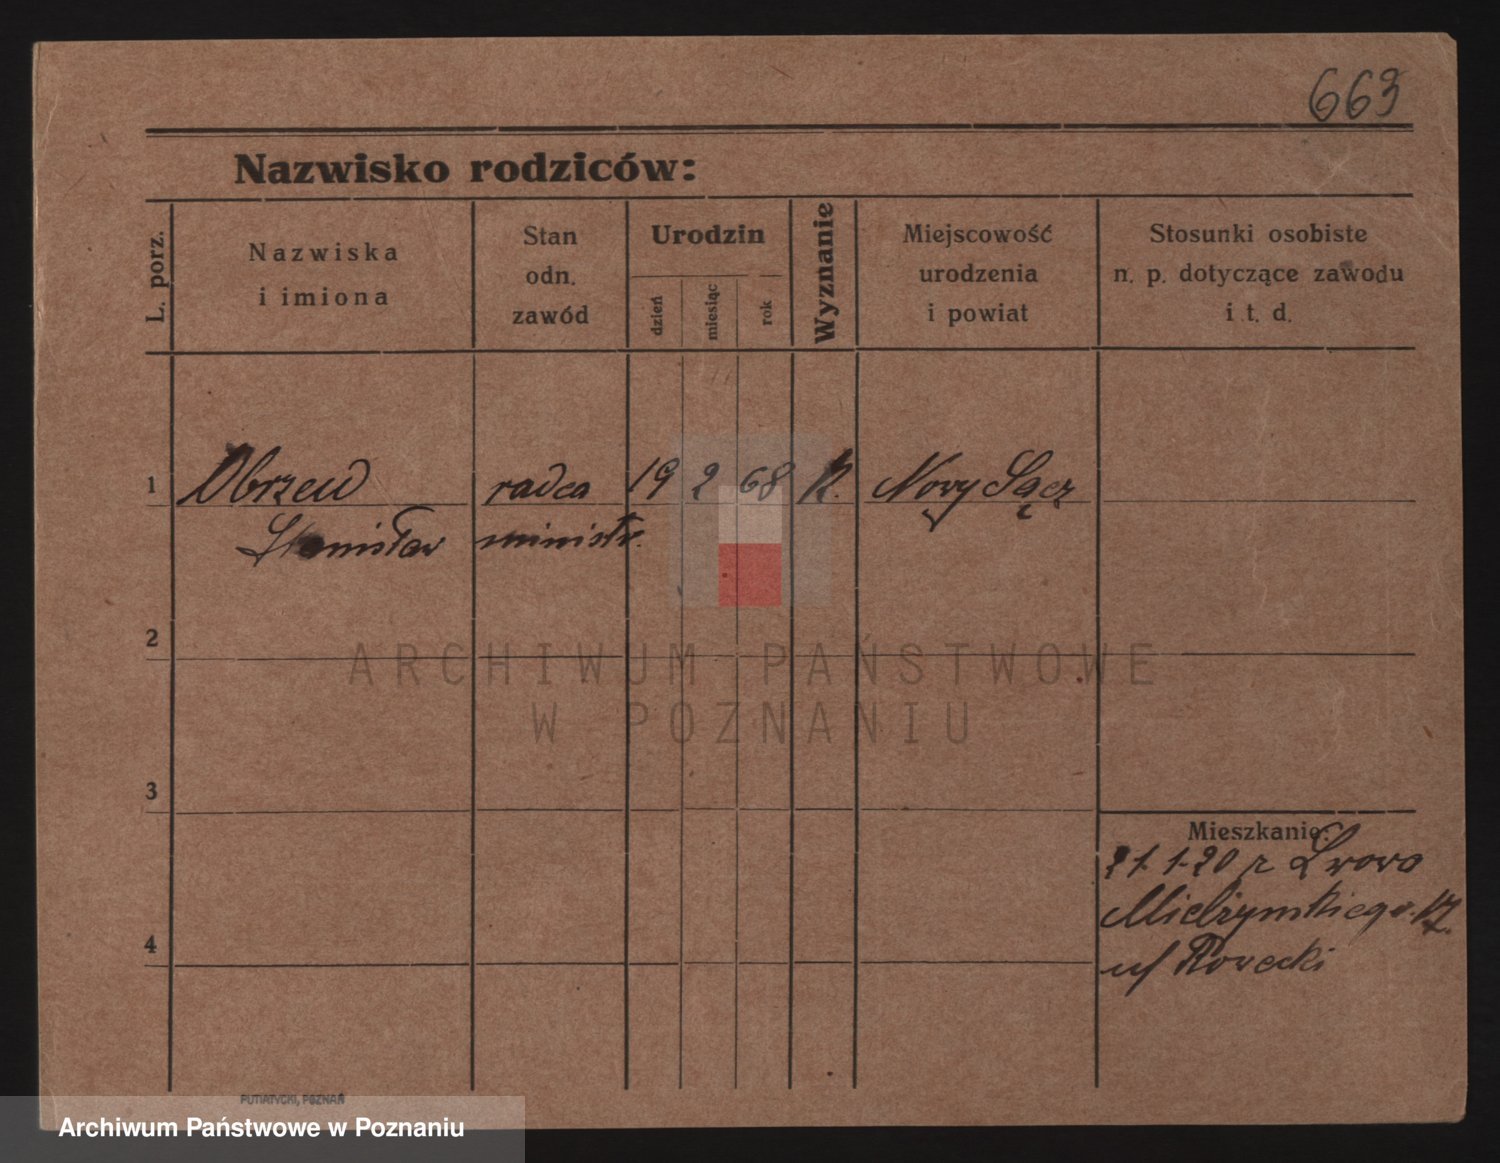 663
Nazwisko rodziców:
L. porz.
Nazwiska
i imiona
Stan
odn.
zawód
Urodzin
dzień
miesiąc
rok
Wyznanie
Miejscowość
urodzenia
i powiat
Stosunki osobiste
n. p. dotyczące zawodu
i t. d.
1 Obrzud radca 19 2 68 k. Nowy Sącz
Stanisław ministr.
2
ARCHIWUM PAŃSTWOWE
W POZNANIU
3
Mieszkanie:
21. 1. 20 z Lwowa
Mielżyńskiego 17
u/ Rowecki
4
PUTIATYCKI, POZNAŃ
Archiwum Państwowe w Poznaniu